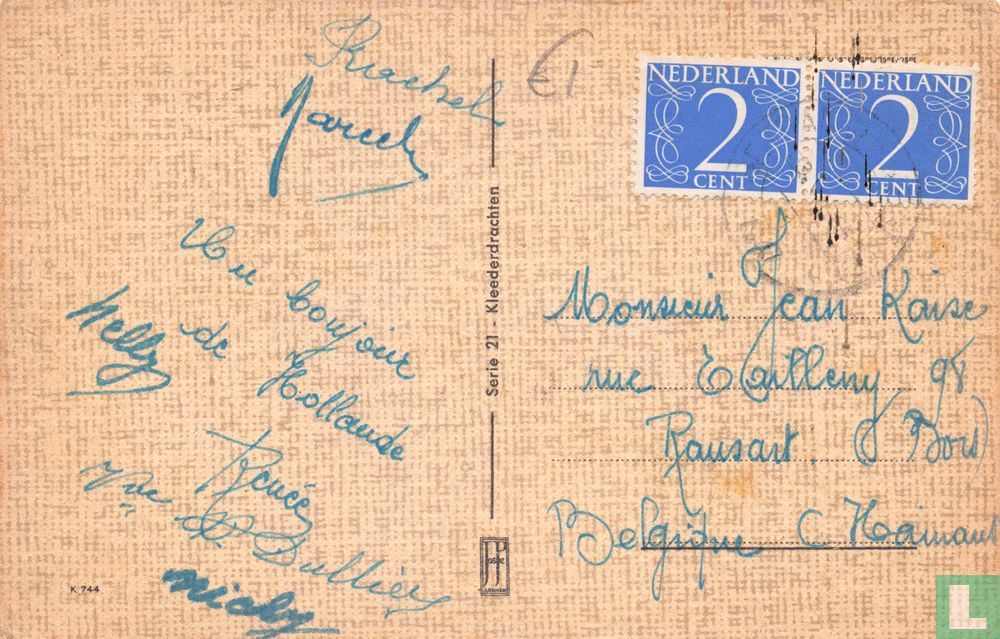 Rachel
Marcel
€1-
NEDERLAND
2
CENT
NEDERLAND
2
CENT
Un bonjour
de Hollande
Nelly
Renée
Micky
Serie 21 - Kleederdrachten
K 744
JosPe
ARNHEM
Monsieur Jean Kaise
rue 98
Ransart. (Bois)
Belgique (Hainaut
L